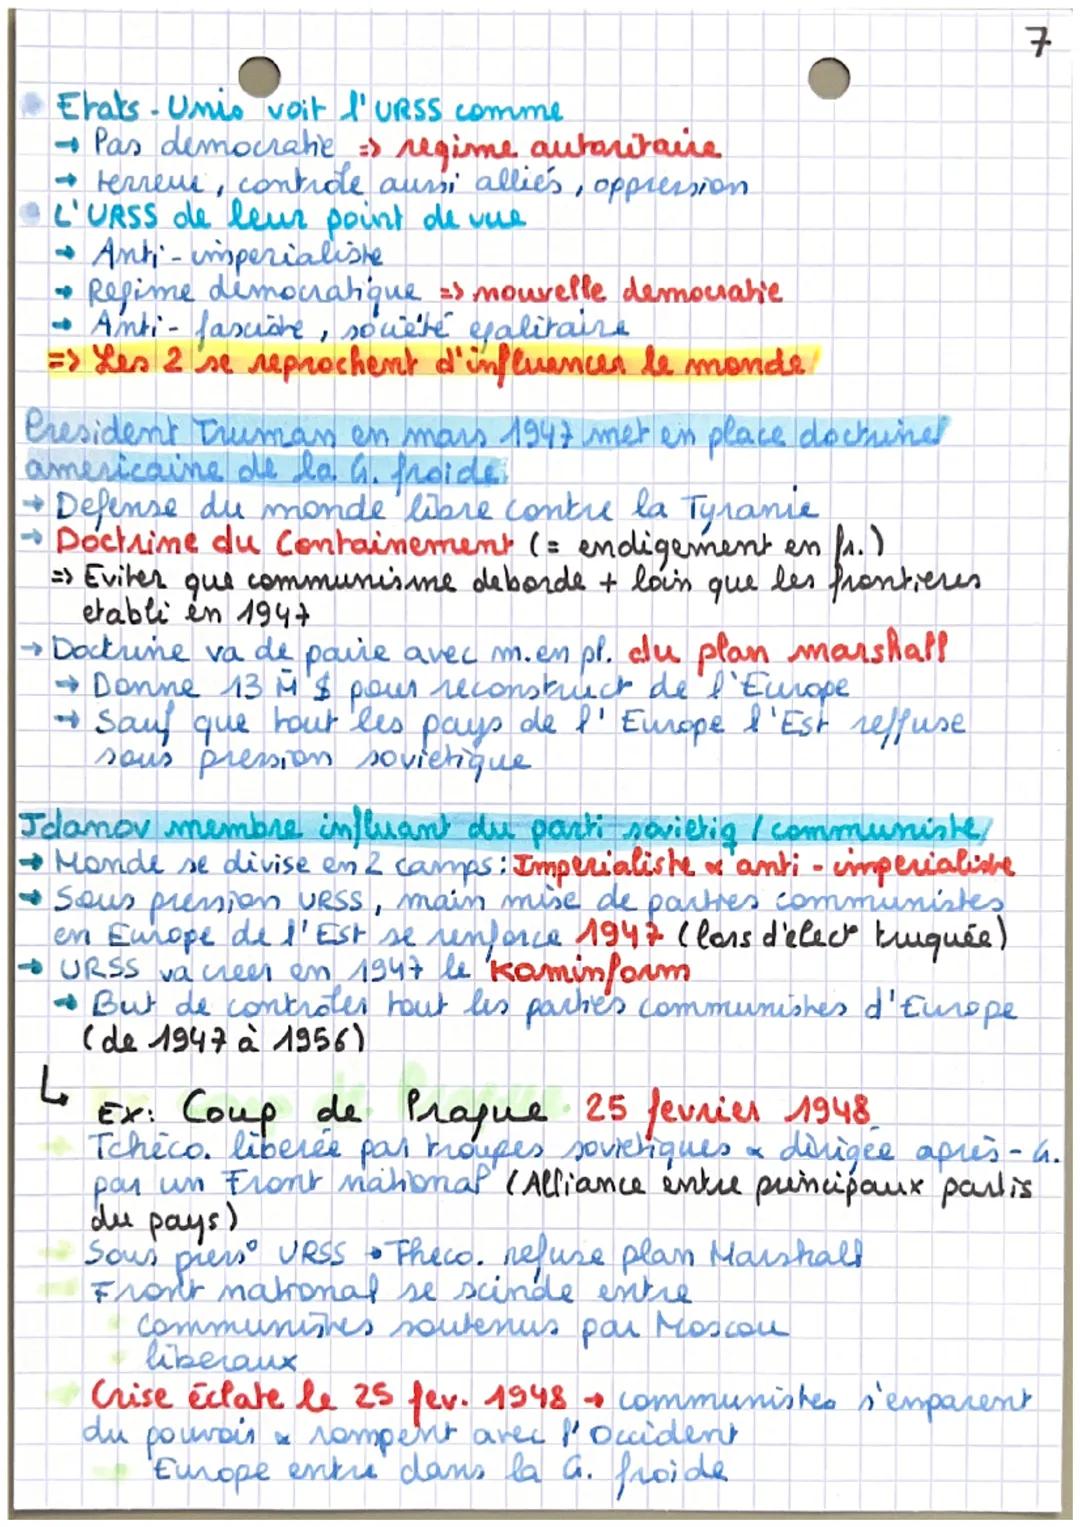 7
Etats-Unis voit l'URSS comme
→ Pas democratie => regime autoritaire
→ terreur, contrôle aussi alliés, oppression
L'URSS de leur point de vue
→ Anti-imperialiste
→ Regime démocratique => nouvelle democratie
→ Anti-fasciste, société egalitaire
=> Les 2 se reprochent d'influencer le monde
President Truman en mars 1947 met en place doctrine
americaine de la G. froide
→ Defense du monde libre contre la Tyranie
→ Doctrine du Containement (= endigement en fr.)
=> Eviter que communisme deborde + loin que les frontieres
etabli en 1947
→ Doctrine va de paire avec m. en pl. du plan marshall
→ Donne 13 M̄ $ pour reconstruct de l'Europe
→ Sauf que tout les pays de l'Europe l'Est reffuse
sous pression sovietique
Jdanov membre influant du parti sovietiq / communiste
→ Monde se divise en 2 camps : Imperialiste & anti-imperialiste
→ Sous pression URSS, main mise de parties communistes
en Europe de l'Est se renforce 1947 (lors d'elect° truquée)
→ URSS va creer en 1947 le Kominform
→ But de contrôler tout les parties communistes d'Europe
(de 1947 à 1956)
↳ Ex: Coup de Prague 25 fevrier 1948
Tchéco. liberée par troupes sovietiques & dirigée après-G.
par un Front national (Alliance entre principaux partis
du pays)
Sous press° URSS → Theco. refuse plan Marshall
Front national se scinde entre
communistes soutenus par Moscou
liberaux
Crise éclate le 25 fev. 1948 → communistes s'emparent
du pouvoir & rompent avec l'Occident
Europe entre dans la G. froide